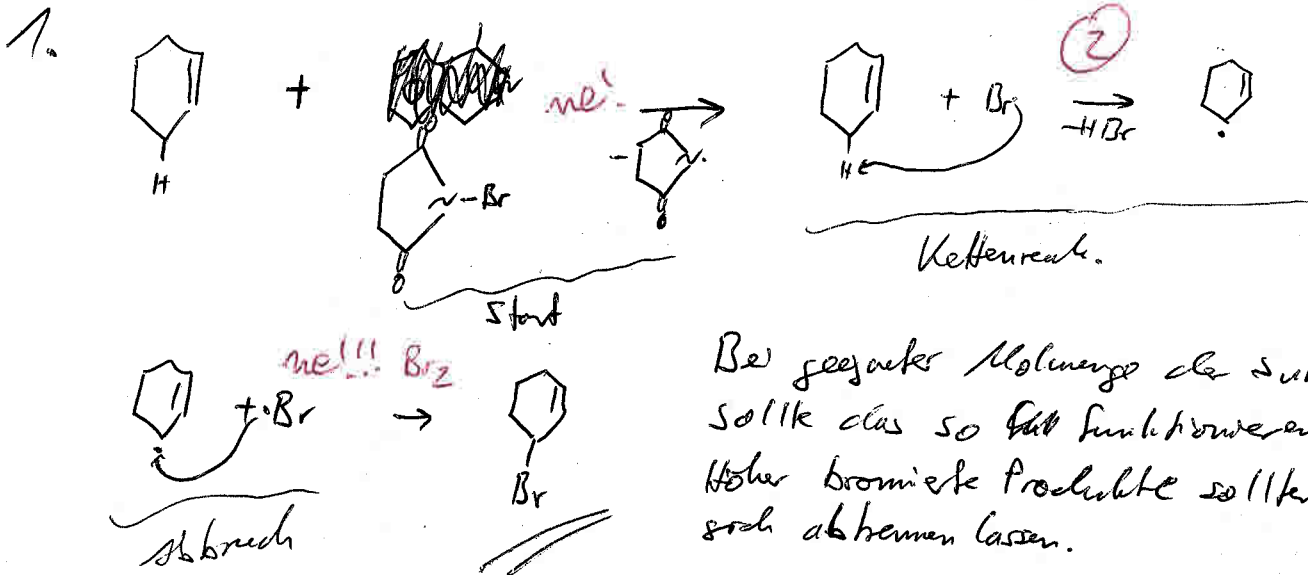 1.
+ ne! + Br 2
H O N-Br O - O N. O H -HBr
Kettenreak.
Start
ne!!! Br2
+ ·Br → Br
Abbruch
Bei geeigneter Molmenge der
sollte das so funktionieren
Höher bromierte Produkte sollten
sich abtrennen lassen.